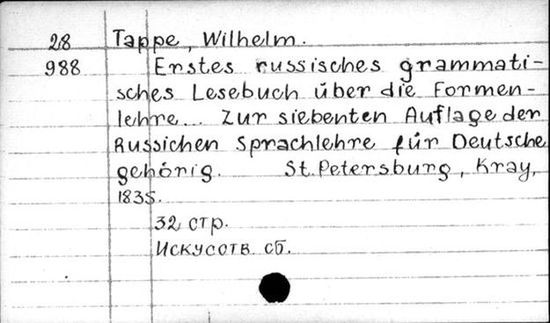 28 Tappe, Wilhelm.
988 Erstes russisches grammati-
sches Lesebuch über die Formen-
lehre... Zur siebenten Auflage der
Russichen Sprachlehre für Deutsche
gehörig. St. Petersburg, Kray,
1835.
32 стр.
Искусств. сб.